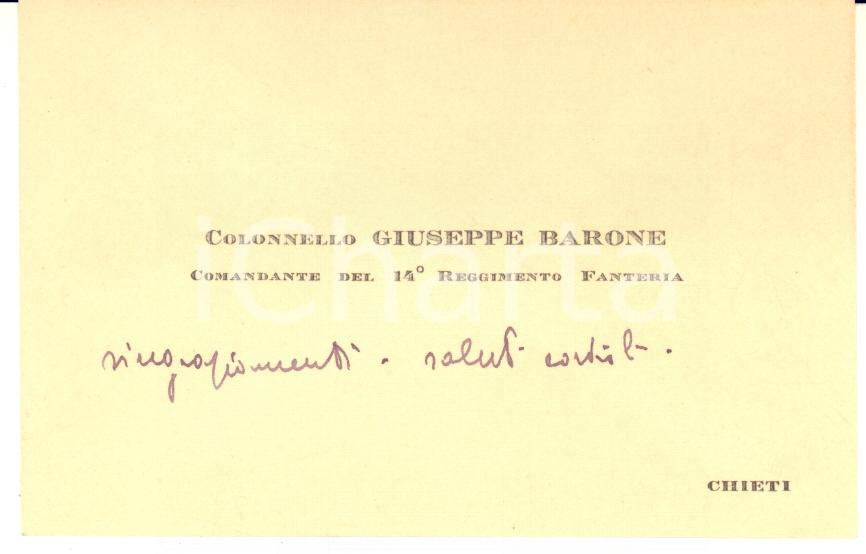 Colonnello GIUSEPPE BARONE
Comandante del 14° Reggimento Fanteria
iCharta
ringraziamenti - saluti cordiali -
CHIETI